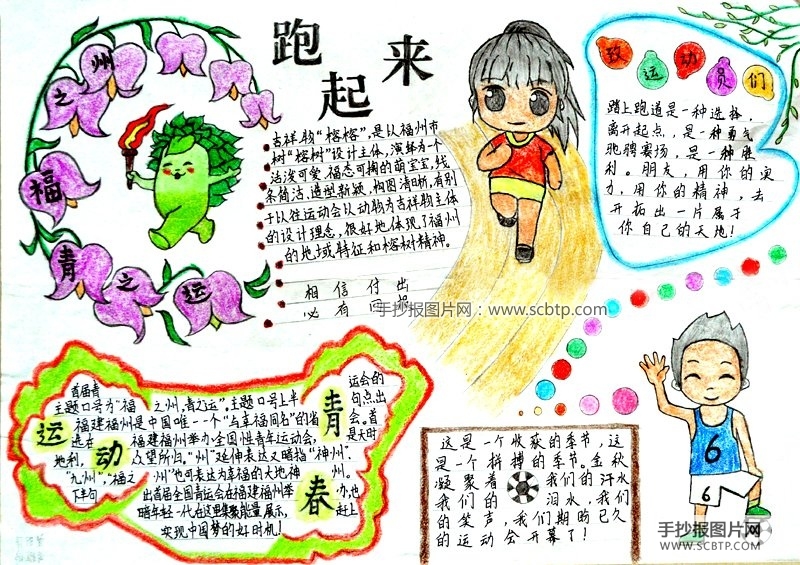 跑起来
福之州
青之运
吉祥物“榕榕”,是以福州市
树“榕树”设计主体,演绎为一个
活泼可爱、福态可掬的萌宝宝,线
条简洁、造型新颖、构图清晰,有别
于以往运动会以动物为吉祥物主体
的设计理念,很好地体现了福州
的地域特征和榕树精神。
相信付出
必有回报
手抄报图片网:www.scbtp.com
致运动员们
踏上跑道是一种选择,
离开起点,是一种勇气
驰骋赛场,是一种胜
利。朋友,用你的实
力,用你的精神,去
开拓出一片属于
你自己的天地!
运动
青春
首届青
运会的
主题口号为“福
之州,青之运”。主题口号上半
句点出
福建福州是中国唯一一个“与幸福同名”的省
会。首
选在
福建福州举办全国性青年运动会,
是天时
地利,
众望所归。“州”延伸表达又暗指“神州”
“九州”,“福之
州”也可表达为幸福的大地神
州。
下半句
出首届全国青运会在福建福州举
办,也
暗年轻一代在这里集聚能量,展示,
赶上
实现中国梦的好时机!
这是一个收获的季节,这
是一个拼搏的季节。金秋
凝聚着 我们的汗水
我们的 泪水,我们
的笑声,我们期盼已久
的运动会开幕了!
6
6
手抄报图片网
WWW.SCBTP.COM